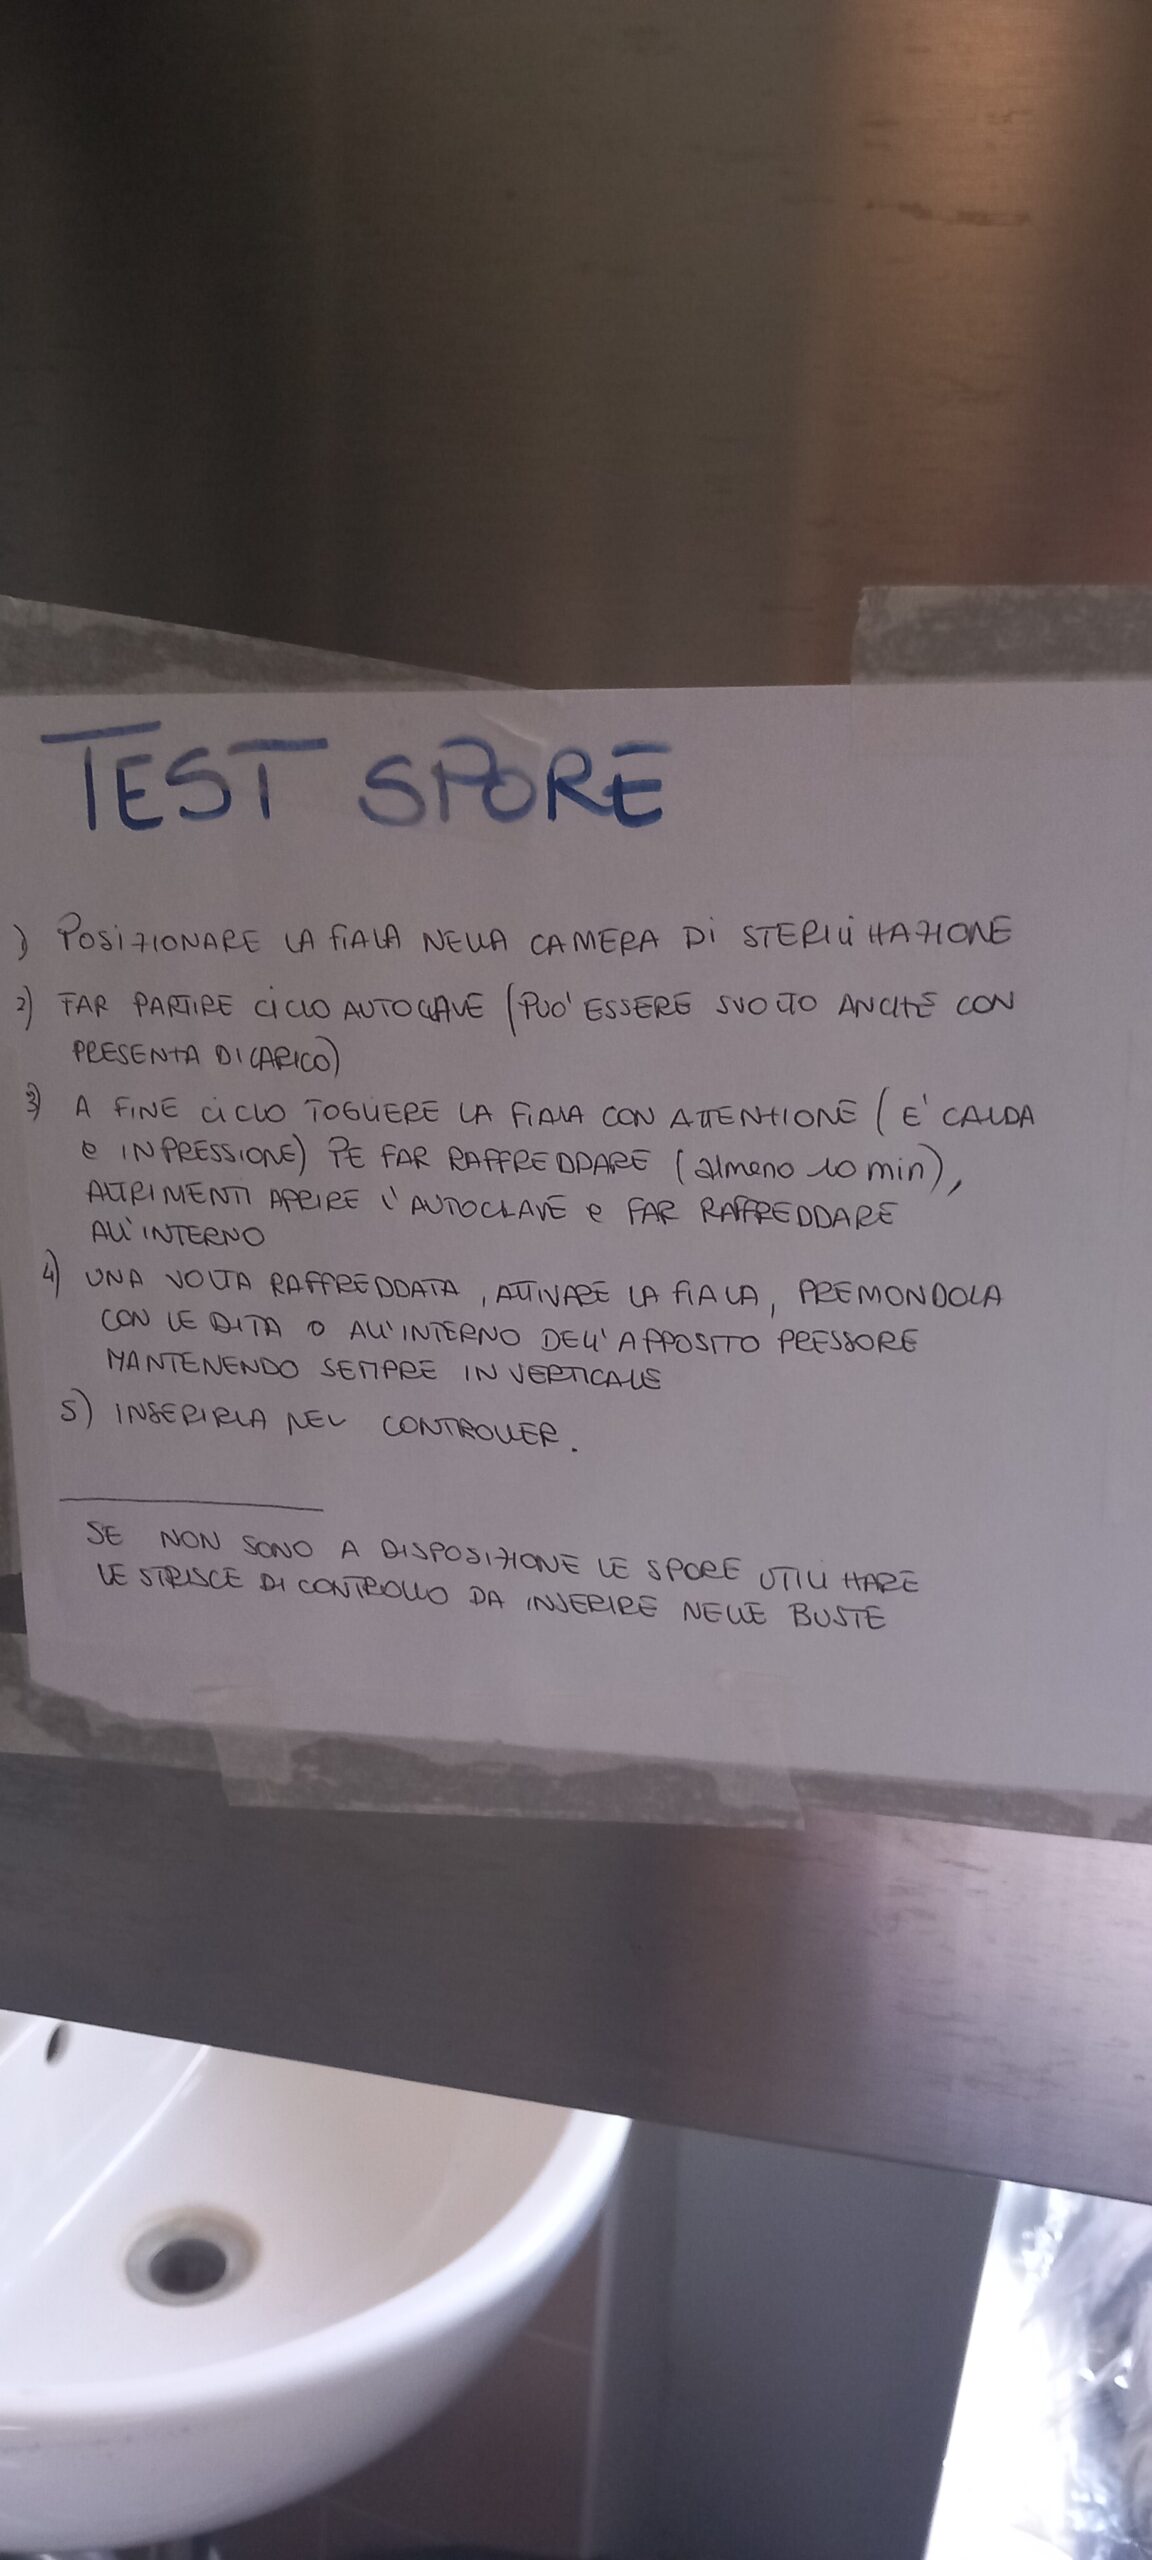 TEST SPORE
1) POSIZIONARE LA FIALA NELLA CAMERA DI STERILIZZAZIONE
2) FAR PARTIRE CICLO AUTOCLAVE (PUO' ESSERE SVOLTO ANCHE CON
PRESENZA DI CARICO)
3) A FINE CICLO TOGLIERE LA FIALA CON ATTENZIONE (E' CALDA
e IN PRESSIONE) PE FAR RAFFREDDARE (almeno 10 min),
ALTRIMENTI APRIRE L'AUTOCLAVE e FAR RAFFREDDARE
ALL'INTERNO
4) UNA VOLTA RAFFREDDATA, ATTIVARE LA FIALA, PREMONDOLA
CON LE DITA O ALL'INTERNO DELL'APPOSITO PRESSORE
MANTENENDO SEMPRE IN VERTICALE
5) INSERIRLA NEL CONTROLLER.
SE NON SONO A DISPOSIZIONE LE SPORE UTILIZZARE
LE STRISCE DI CONTROLLO DA INSERIRE NELLE BUSTE